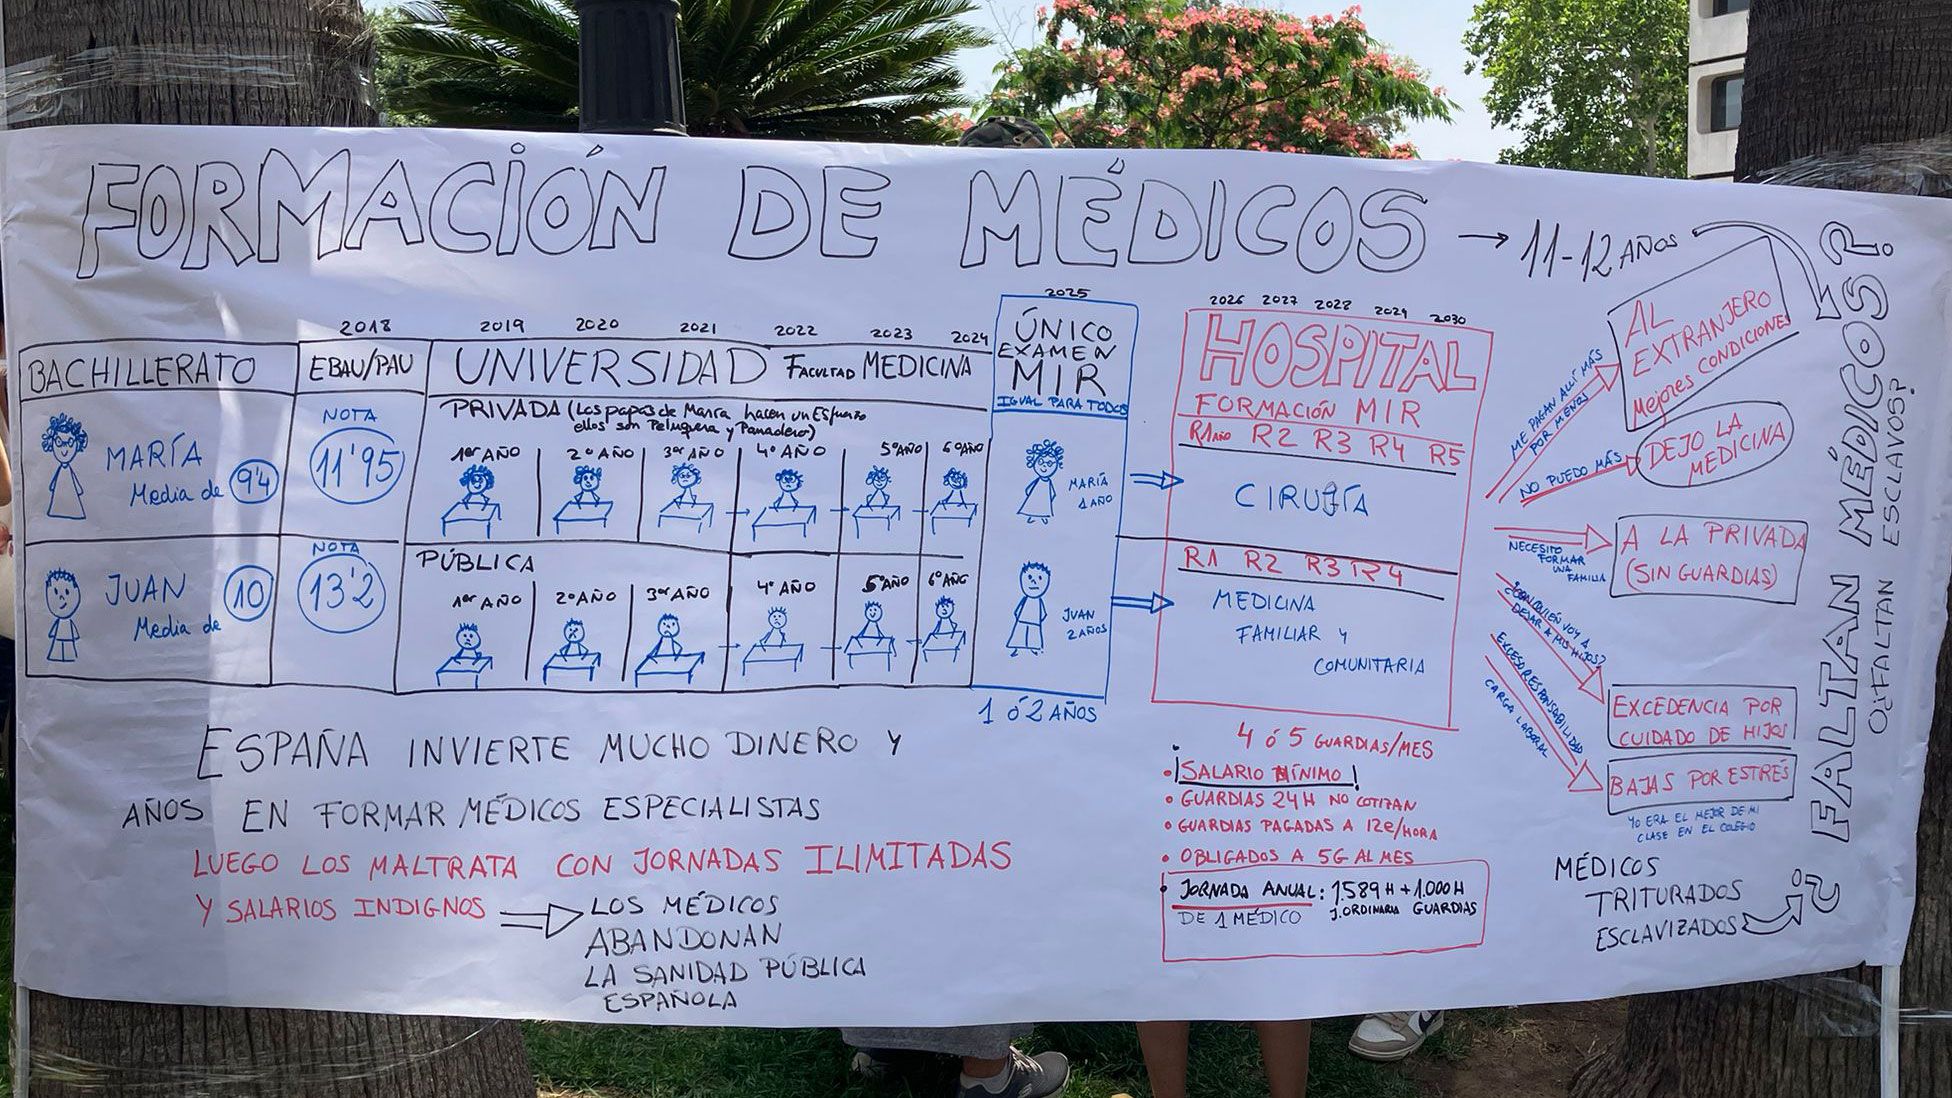 FORMACIÓN DE MÉDICOS → 11-12 AÑOS
2018 2019 2020 2021 2022 2023 2024
BACHILLERATO
MARÍA
Media de 9'4
JUAN
Media de 10
EBAU/PAU
NOTA
11'95
NOTA
13'2
UNIVERSIDAD FACULTAD MEDICINA
PRIVADA (Los papas de María hacen un Esfuerzo
ellos son Peluquera y Panadero)
1er AÑO 2º AÑO 3er AÑO 4º AÑO 5º AÑO 6º AÑO
PÚBLICA
1er AÑO 2º AÑO 3er AÑO 4º AÑO 5º AÑO 6º AÑO
2025
ÚNICO
EXAMEN
MIR
IGUAL PARA TODOS
MARÍA
1 AÑO
JUAN
2 AÑOS
1 ó 2 AÑOS
2026 2027 2028 2029 2030
HOSPITAL
FORMACIÓN MIR
R1 AÑO R2 R3 R4 R5
CIRUJÍA
R1 R2 R3 R4
MEDICINA
FAMILIAR Y
COMUNITARIA
4 ó 5 GUARDIAS/MES
• ¡SALARIO MÍNIMO!
• GUARDIAS 24H NO COTIZAN
• GUARDIAS PAGADAS A 12€/HORA
• OBLIGADOS A 5G AL MES
• JORNADA ANUAL: 1.589 H + 1.000 H
DE 1 MÉDICO J. ORDINARIA GUARDIAS
ME PAGAN ALLÍ MÁS
POR MENOS
AL
EXTRANJERO
Mejores CONDICIONES
NO PUEDO MÁS
DEJO LA
MEDICINA
NECESITO
FORMAR
UNA
FAMILIA
A LA PRIVADA
(SIN GUARDIAS)
¿CON QUIÉN VOY A
DEJAR A MIS HIJOS?
EXCEDENCIA POR
CUIDADO DE HIJOS
EXCESO RESPONSABILIDAD
CARGA LABORAL
BAJAS POR ESTRÉS
YO ERA EL MEJOR DE MI
CLASE EN EL COLEGIO
MÉDICOS
TRITURADOS
ESCLAVIZADOS
¿FALTAN MÉDICOS?
O ¿FALTAN ESCLAVOS?
ESPAÑA INVIERTE MUCHO DINERO Y
AÑOS EN FORMAR MÉDICOS ESPECIALISTAS
LUEGO LOS MALTRATA CON JORNADAS ILIMITADAS
Y SALARIOS INDIGNOS ⇒ LOS MÉDICOS
ABANDONAN
LA SANIDAD PÚBLICA
ESPAÑOLA